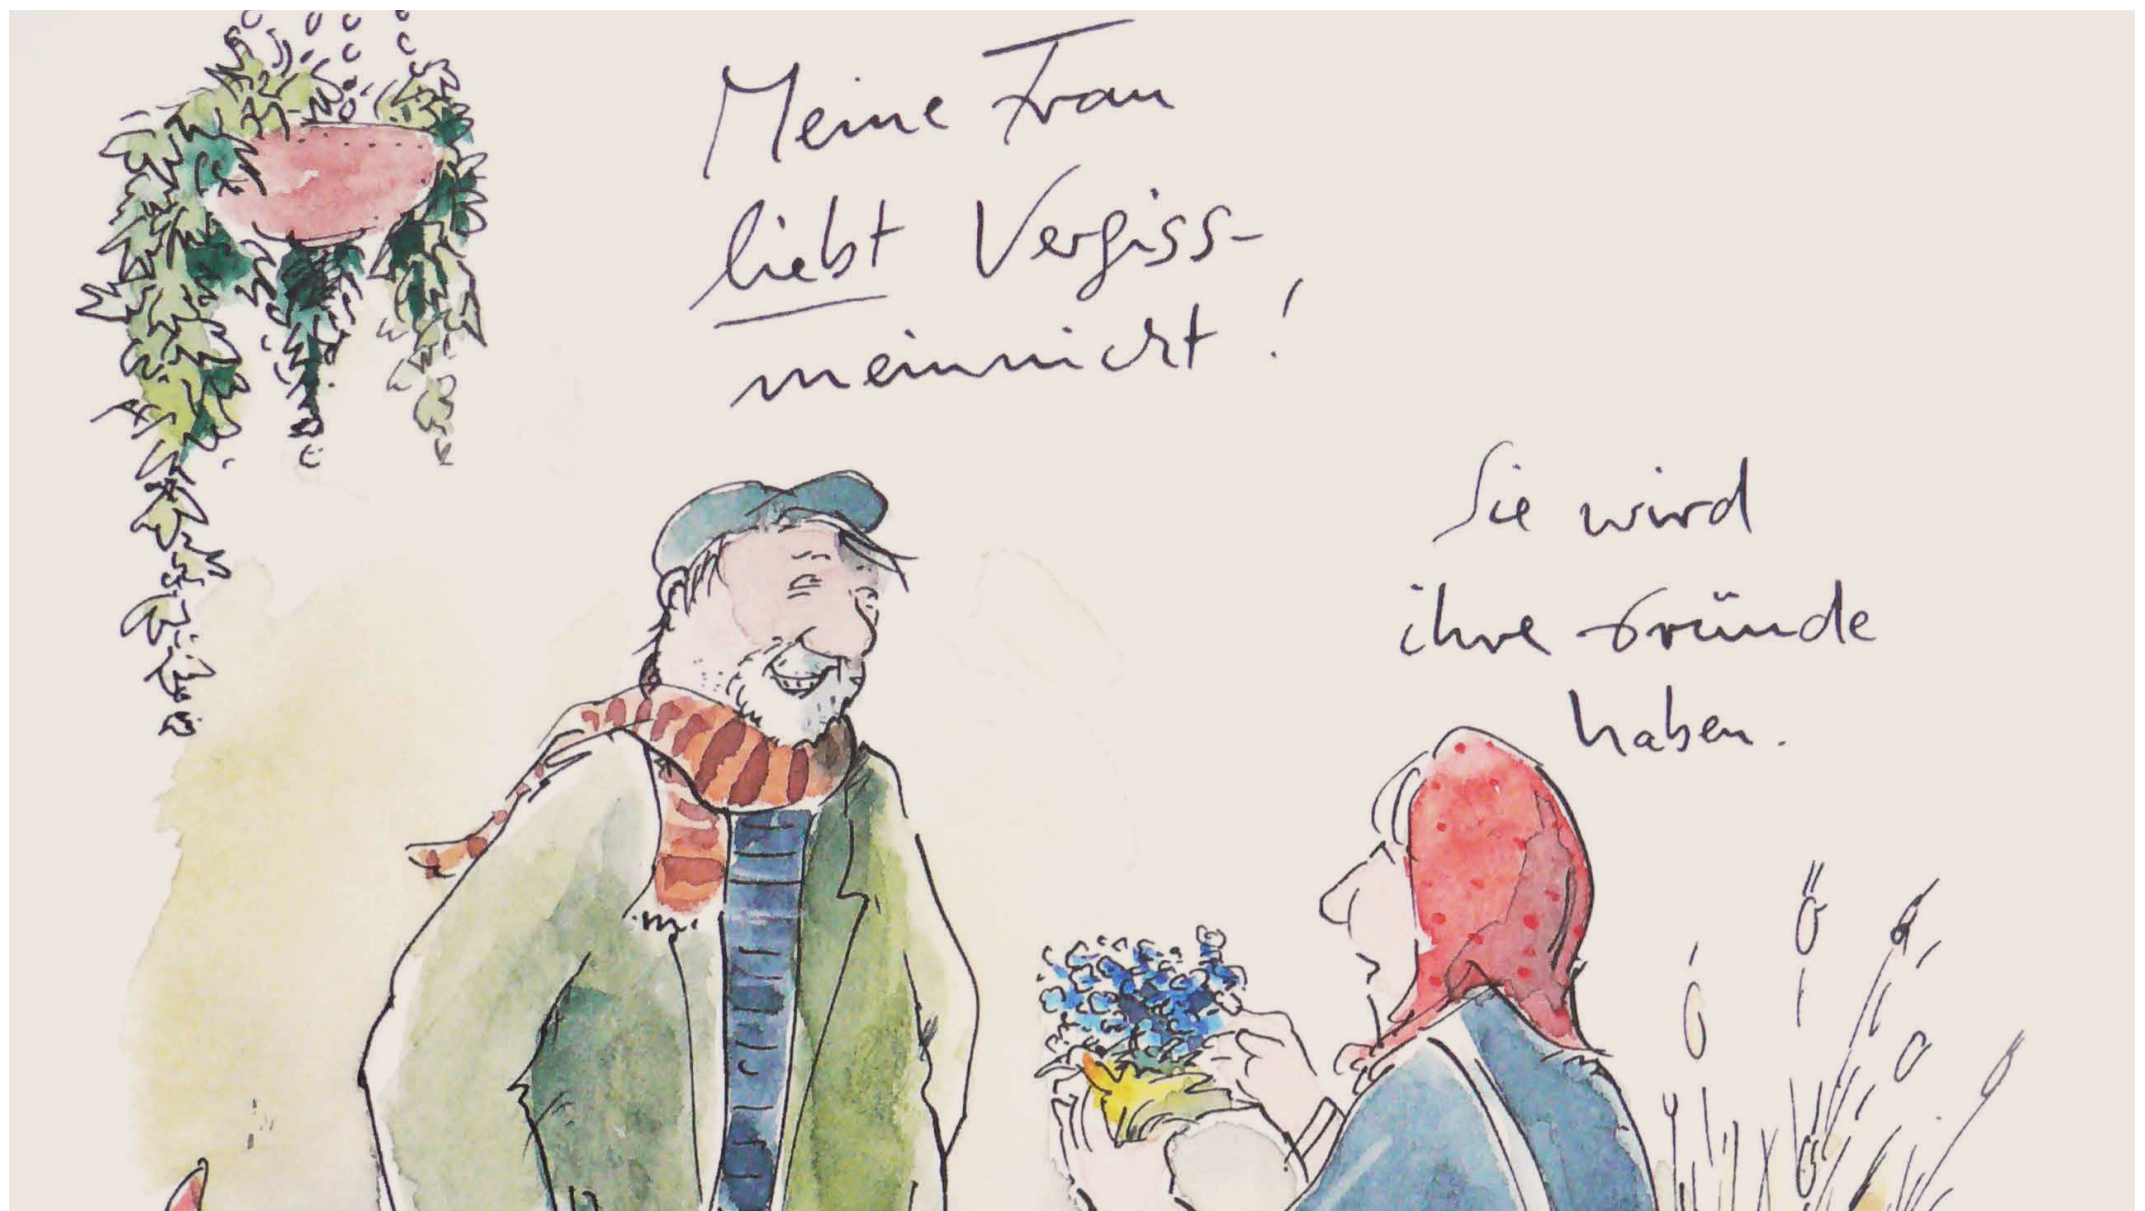 Meine Frau
liebt Vergiss-
meinnicht!
Sie wird
ihre Gründe
haben.